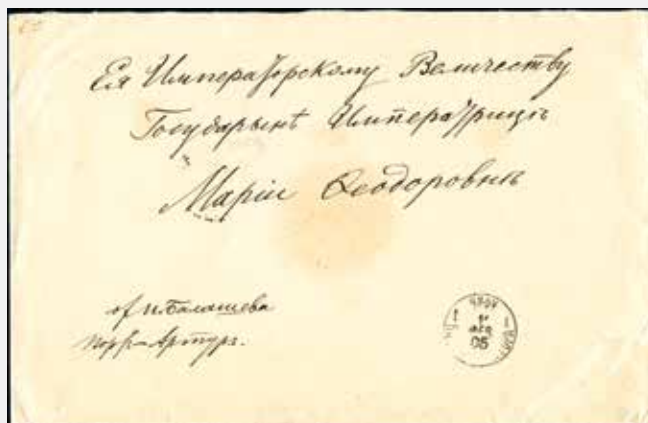 Ея Императорскому Величеству
Государынѣ Императрицѣ
Маріи Ѳеодоровнѣ
от И. Балашева
Порт-Артуръ.
05